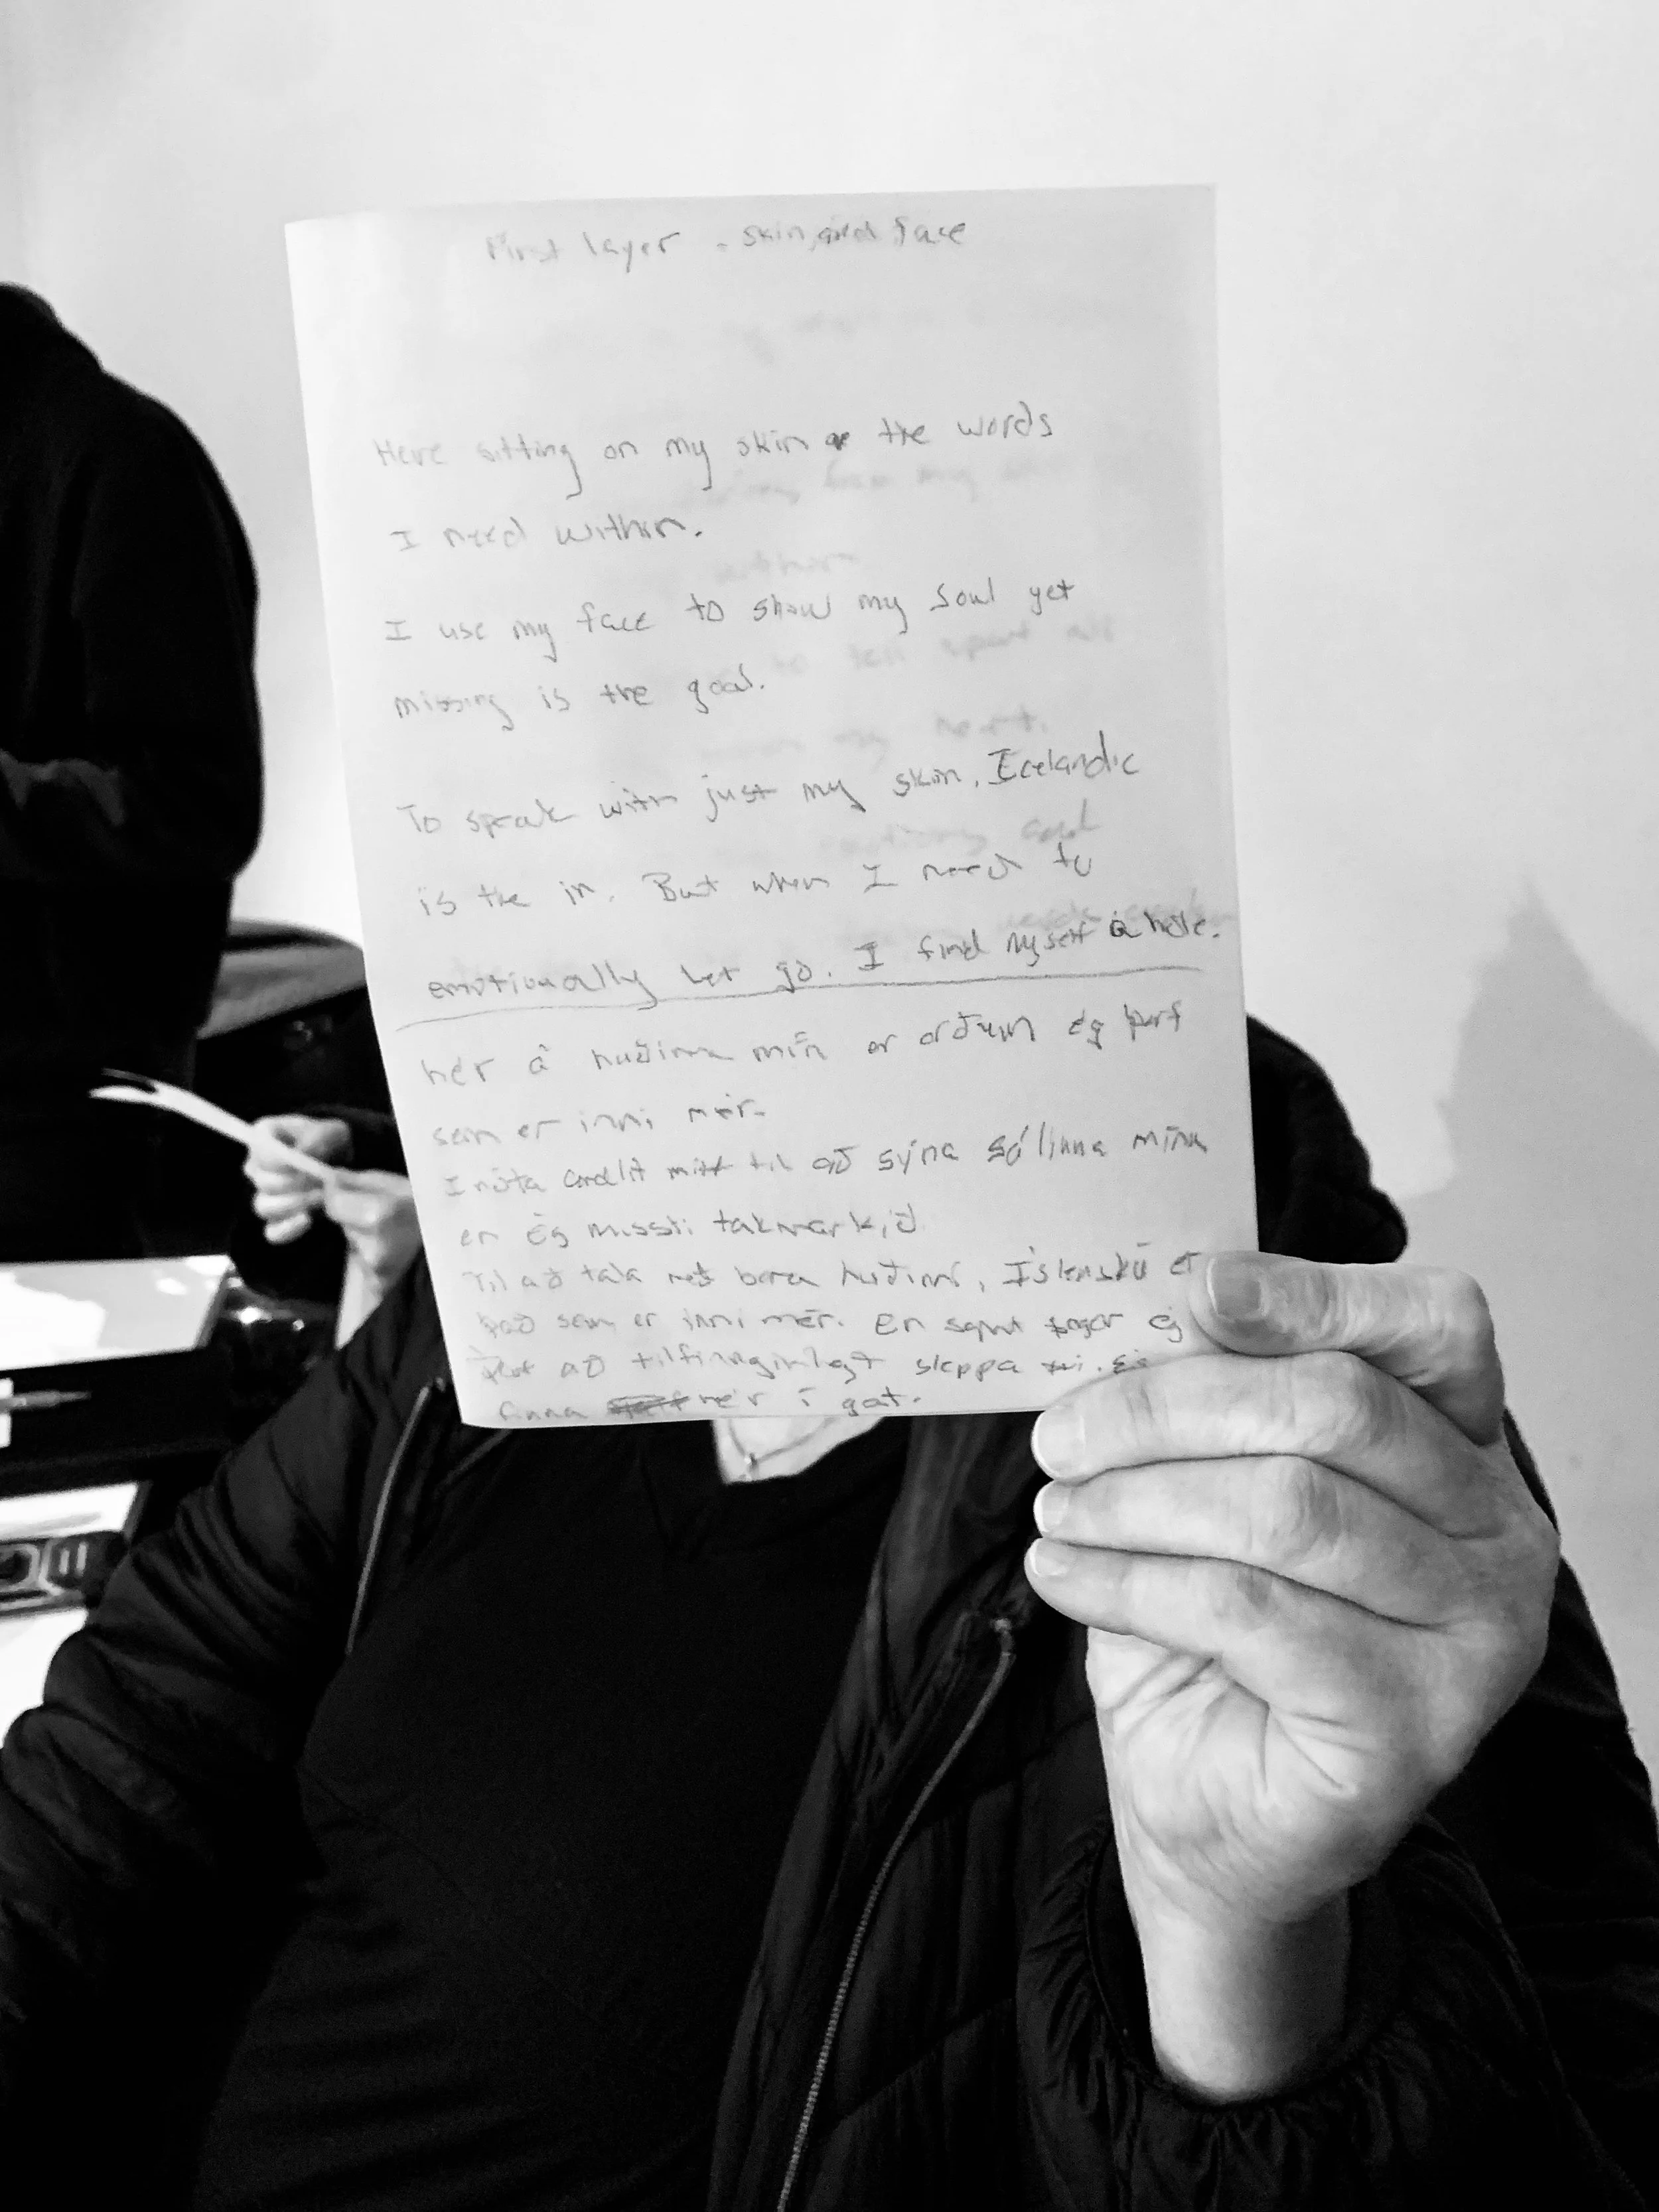 First layer - skin and face
Here sitting on my skin or the words
I need within.
I use my face to show my soul yet
missing is the goal.
To speak with just my skin, Icelandic
is the in. But when I need to
emotionally let go. I find myself a hole.
hér á huðinna mín er orðum ég þarf
sem er inni mér.
I nóta andlit mitt til að sýna sálinna mína
en ég missti takmarkið
Til að tala með bara huðinni, Íslensku er
það sem er inni mér. En ég
að tilfinnginlegt sleppa
finna mér í gat.